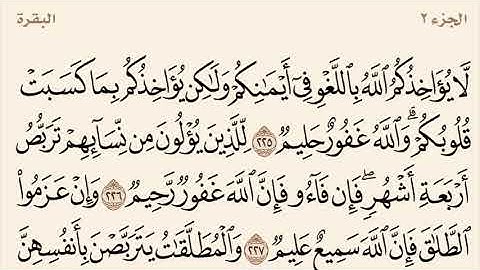 الجزء ٢ البقرة
لَّا يُؤَاخِذُكُمُ ٱللَّهُ بِٱللَّغْوِ فِىٓ أَيْمَـٰنِكُمْ وَلَـٰكِن يُؤَاخِذُكُم بِمَا كَسَبَتْ
قُلُوبُكُمْ ۗ وَٱللَّهُ غَفُورٌ حَلِيمٌ ٢٢٥ لِّلَّذِينَ يُؤْلُونَ مِن نِّسَآئِهِمْ تَرَبُّصُ
أَرْبَعَةِ أَشْهُرٍ ۖ فَإِن فَآءُو فَإِنَّ ٱللَّهَ غَفُورٌ رَّحِيمٌ ٢٢٦ وَإِنْ عَزَمُوا۟
ٱلطَّلَـٰقَ فَإِنَّ ٱللَّهَ سَمِيعٌ عَلِيمٌ ٢٢٧ وَٱلْمُطَلَّقَـٰتُ يَتَرَبَّصْنَ بِأَنفُسِهِنَّ